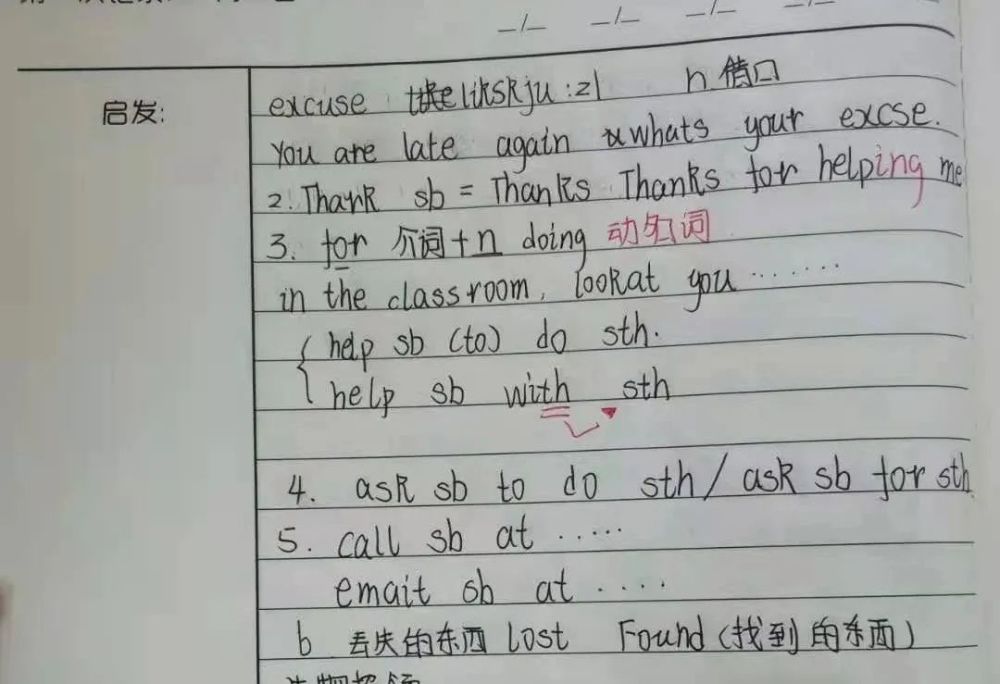 _/_ _/_ _/_ _/_
启发:
excuse n 借口
You are late again whats your excse.
2. Thank sb = Thanks Thanks for helping me
3. for 介词+n doing 动名词
in the classroom, look at you ········
help sb (to) do sth.
help sb with sth
4. ask sb to do sth / ask sb for sth
5. call sb at ·····
emait sb at ····
6 丢失的东西 lost Found (找到的东西)